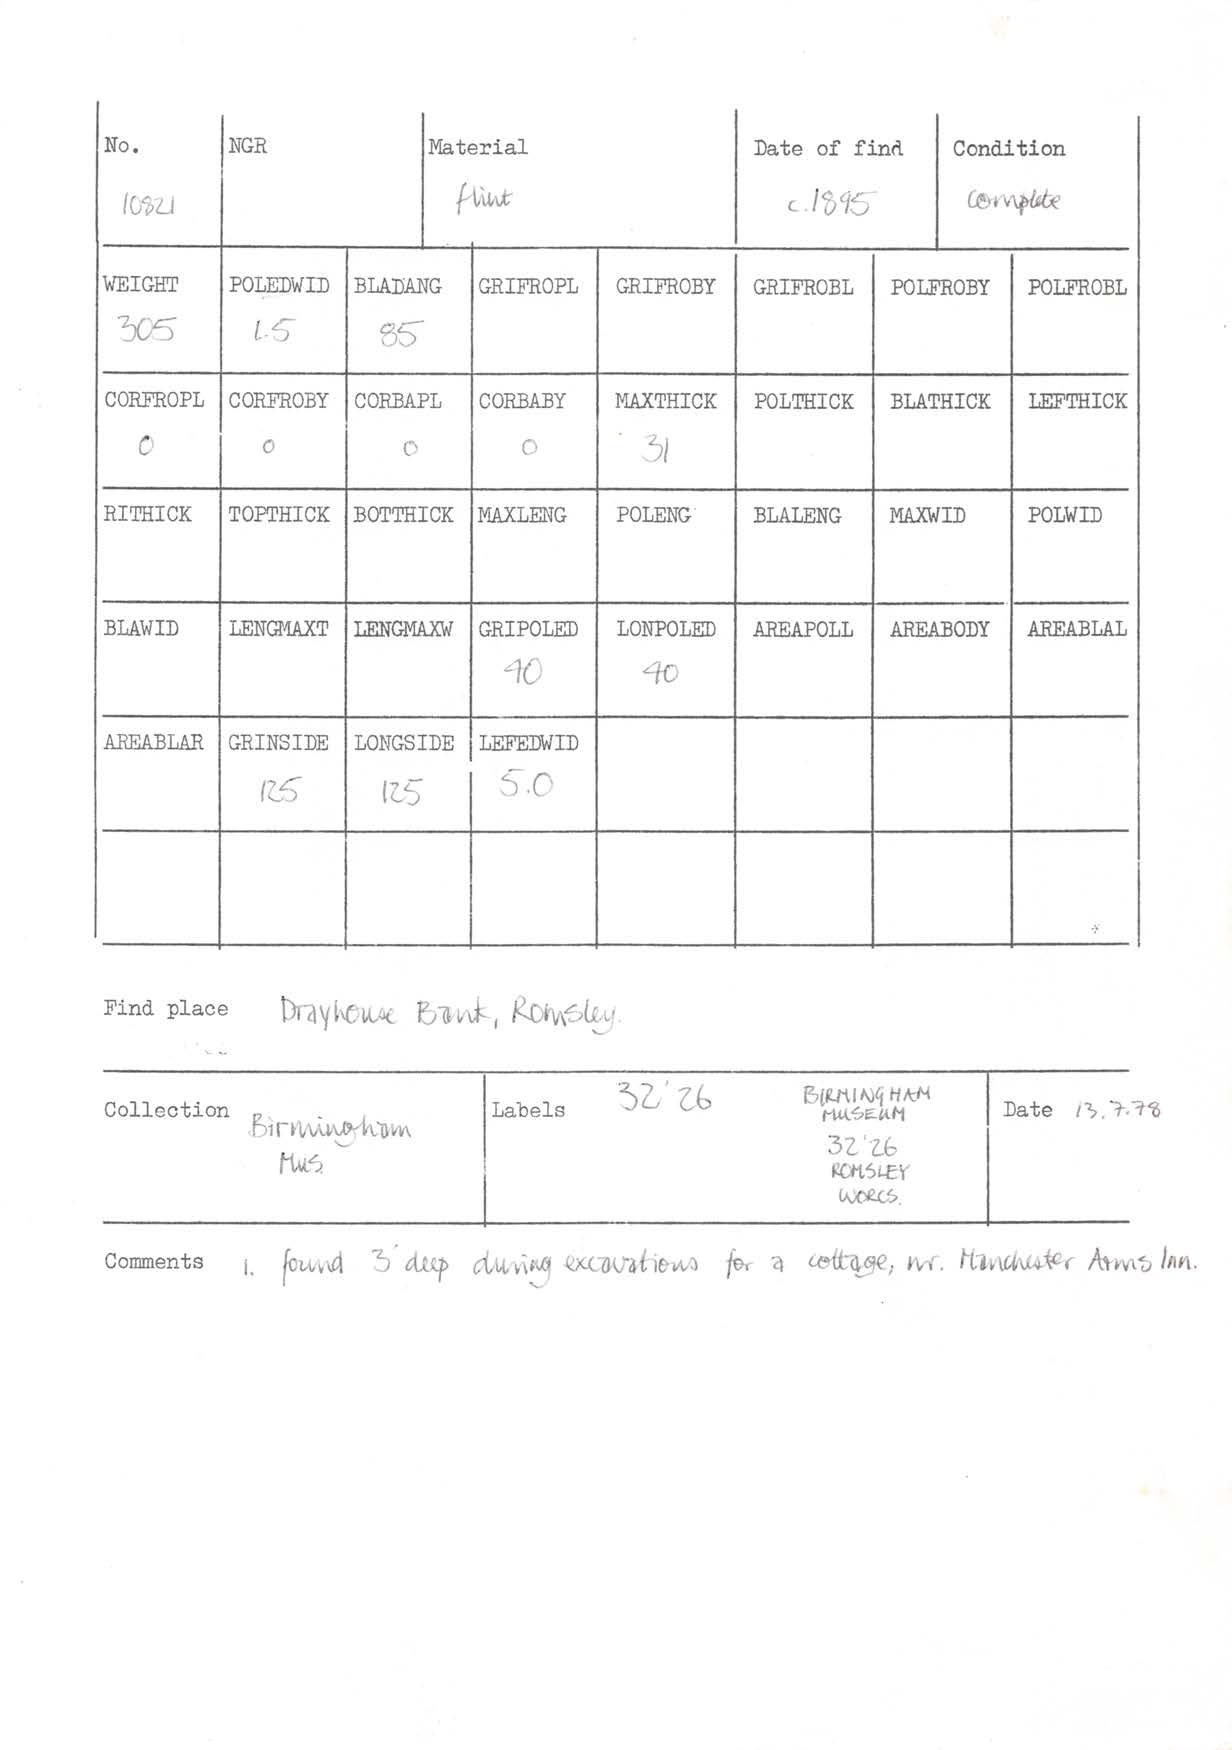 No. NGR Material Date of find Condition
10821 flint c.1895 complete
WEIGHT POLEDWID BLADANG GRIFROPL GRIFROBY GRIFROBL POLFROBY POLFROBL
305 1.5 85
CORFROPL CORFROBY CORBAPL CORBABY MAXTHICK POLTHICK BLATHICK LEFTHICK
0 0 0 0 31
RITHICK TOPTHICK BOTTHICK MAXLENG POLENG BLALENG MAXWID POLWID
BLAWID LENGMAXT LENGMAXW GRIPOLED LONPOLED AREAPOLL AREABODY AREABLAL
40 40
AREABLAR GRINSIDE LONGSIDE LEFEDWID
125 125 5.0
Find place Drayhouse Bank, Romsley.
Collection Birmingham
Mus.
Labels 32'26
BIRMINGHAM
MUSEUM
32'26
ROMSLEY
WORCS.
Date 13.7.78
Comments 1. found 3' deep during excavations for a cottage, nr. Manchester Arms Inn.